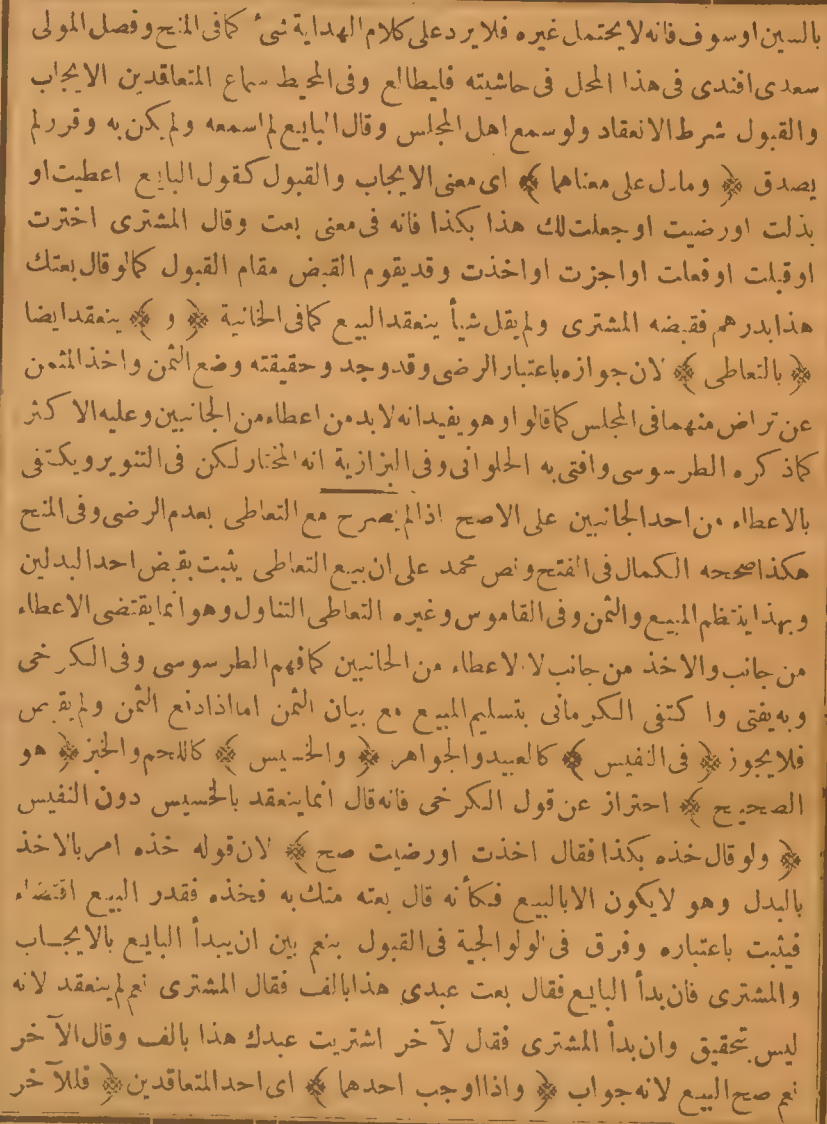 بالسين اوسوف فانه لايحتمل غيره فلايرد على كلام الهداية شئ كمافى المنح وفصل المولى
سعدى افندى فى هذا المحل فى حاشيته فليطالع وفى المحيط سماع المتعاقدين الايجاب
والقبول شرط الانعقاد ولوسمع اهل المجلس وقال البايع لم اسمعه ولم يكن به وقر ر لم
يصدق ﴿ ومادل على معناهما ﴾ اى معنى الايجاب والقبول كقول البايع اعطيت او
بذلت اورضيت اوجعلت لك هذا بكذا فانه فى معنى بعت وقال المشترى اخترت
اوقبلت اوفعلت اواجزت اواخذت وقديقوم القبض مقام القبول كمالوقال بعتك
هذابدرهم فقبضه المشترى ولم يقل شيأ ينعقدالبيع كمافى الخانية ﴿ و ﴾ ينعقدايضا
﴿ بالتعاطى ﴾ لان جوازه باعتبارالرضى وقدوجد وحقيقته وضع الثمن واخذ المثمن
عن تراض منهمافى المجلس كماقالوا وهو يفيدانه لابدمن اعطاءمن الجانبين وعليه الاكثر
كماذكره الطرسوسى وافتى به الحلوانى وفى البزازية انه المختار لكن فى التنوير ويكتفى
بالاعطاء من احدالجانبين على الاصح اذالم يصرح مع التعاطى بعدم الرضى وفى المنح
هكذاصححه الكمال فى الفتح ونص محمد على ان بيع التعاطى يثبت بقبض احدالبدلين
وبهذاينتظم المبيع والثمن وفى القاموس وغيره التعاطى التناول وهوانمايقتضى الاعطاء
من جانب والاخذ من جانب لا الاعطاء من الجانبين كمافهم الطرسوسى وفى الكرخى
وبه يفتى واكتفى الكرمانى بتسليم المبيع مع بيان الثمن امااذادفع الثمن ولم يقبض
فلايجوز ﴿ فى النفيس ﴾ كالعبيدوالجواهر ﴿ والخسيس ﴾ كاللحم والخبز ﴿ هو
الصحيح ﴾ احتراز عن قول الكرخى فانه قال انماينعقد بالخسيس دون النفيس
﴿ ولوقال خذه بكذا فقال اخذت اورضيت صح ﴾ لان قوله خذه امر بالاخذ
بالبدل وهو لايكون الابالبيع فكأنه قال بعته منك به فخذه فقدر البيع اقتضاء
فيثبت باعتباره وفرق فى الولوالجية فى القبول بنعم بين ان يبدأ البايع بالايجاب
والمشترى فان بدأ البايع فقال بعت عبدى هذابالف فقال المشترى نعم لم ينعقد لانه
ليس بتحقيق وان بدأ المشترى فقال لآخر اشتريت عبدك هذا بالف وقال الآخر
نعم صح البيع لانه جواب ﴿ واذااوجب احدهما ﴾ اى احدالمتعاقدين ﴿ فللآخر